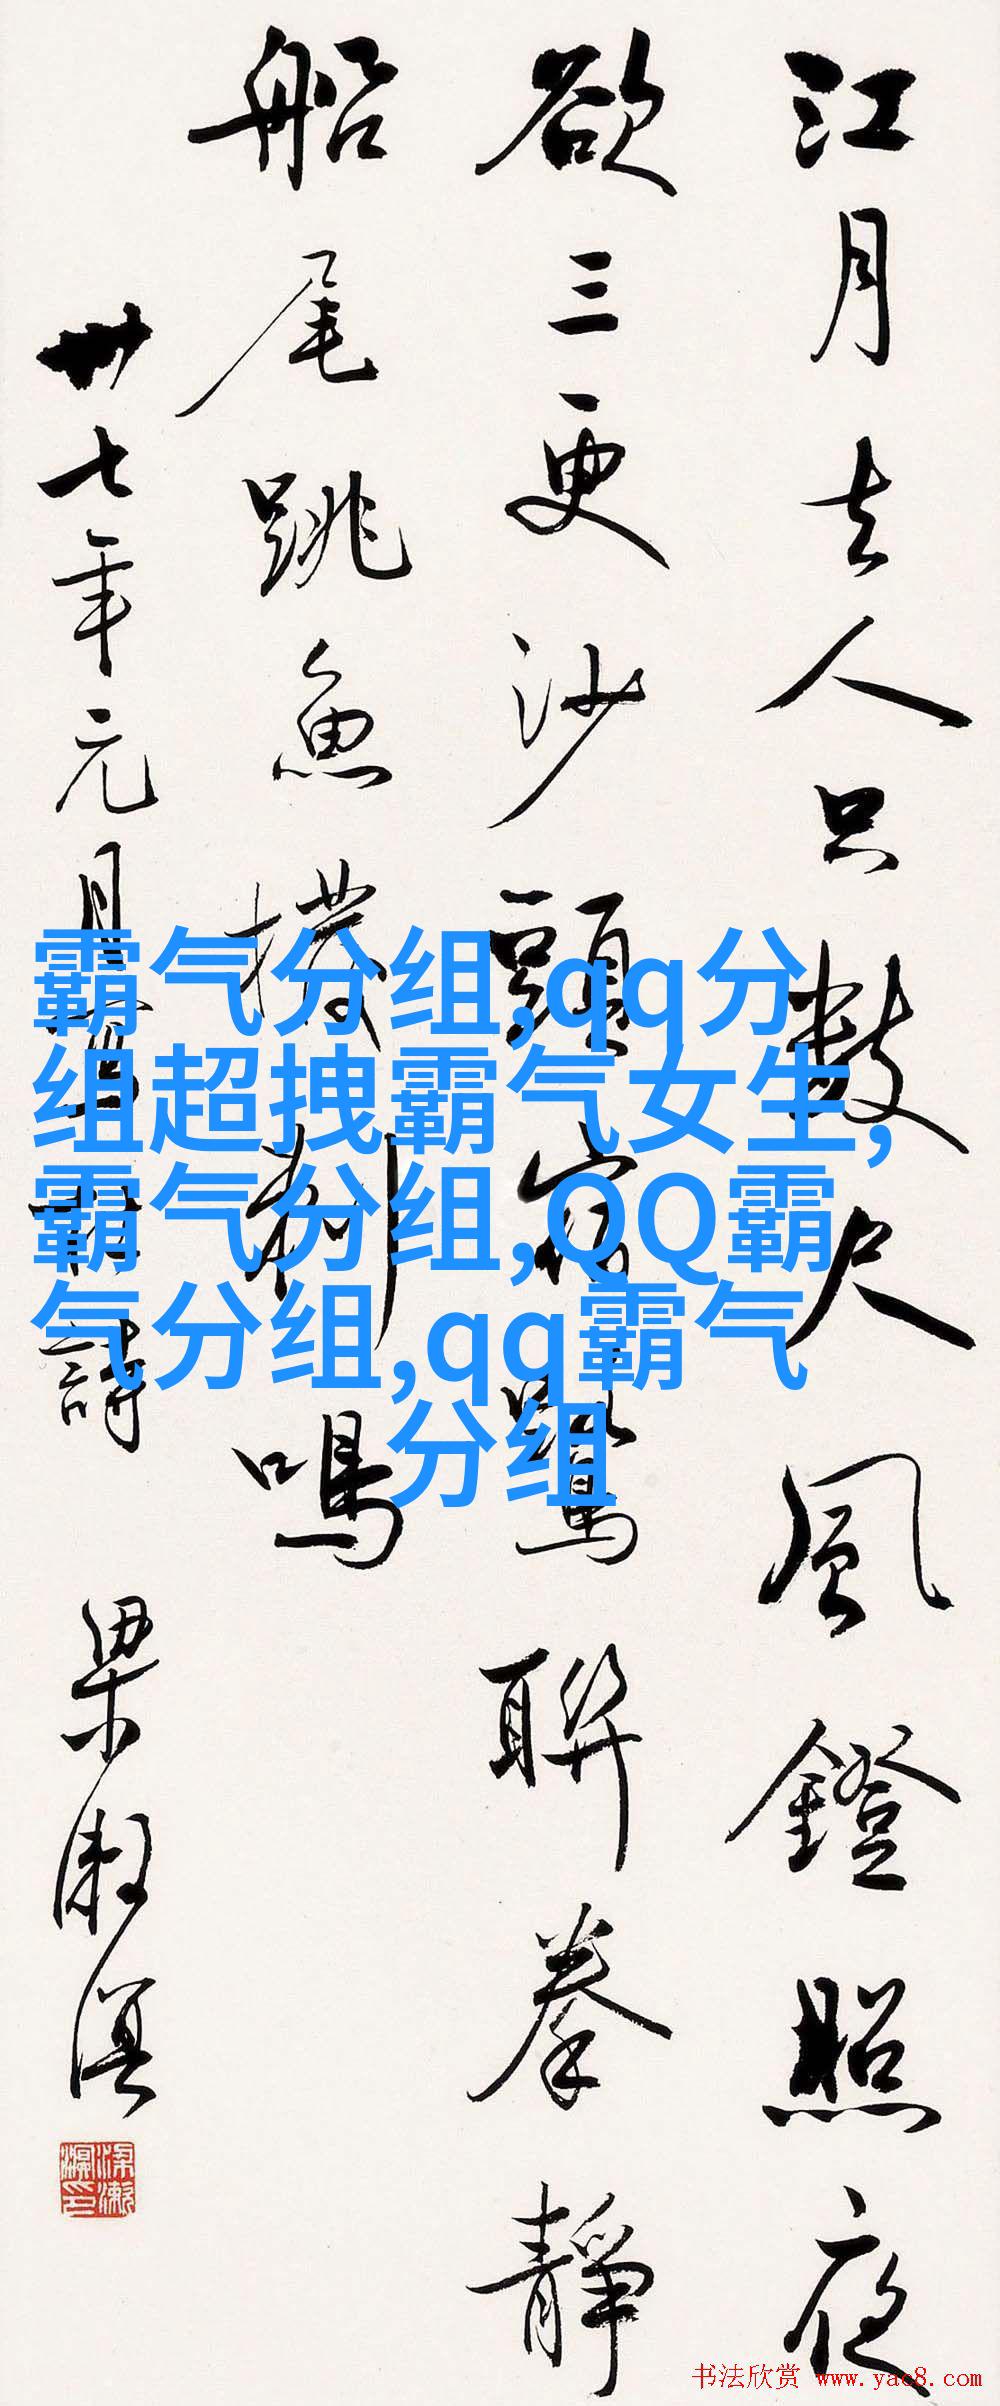 江月去人只數尺風鐙照夜
欲三更沙頭宿鷺聯拳靜
船尾跳魚撥剌鳴
卅七年元月寫杜詩 梁漱溟
梁漱溟印
霸气分组,qq分
组超拽霸气女生,
霸气分组,QQ霸
气分组,qq霸气
分组
书法欣赏 www.yac8.com